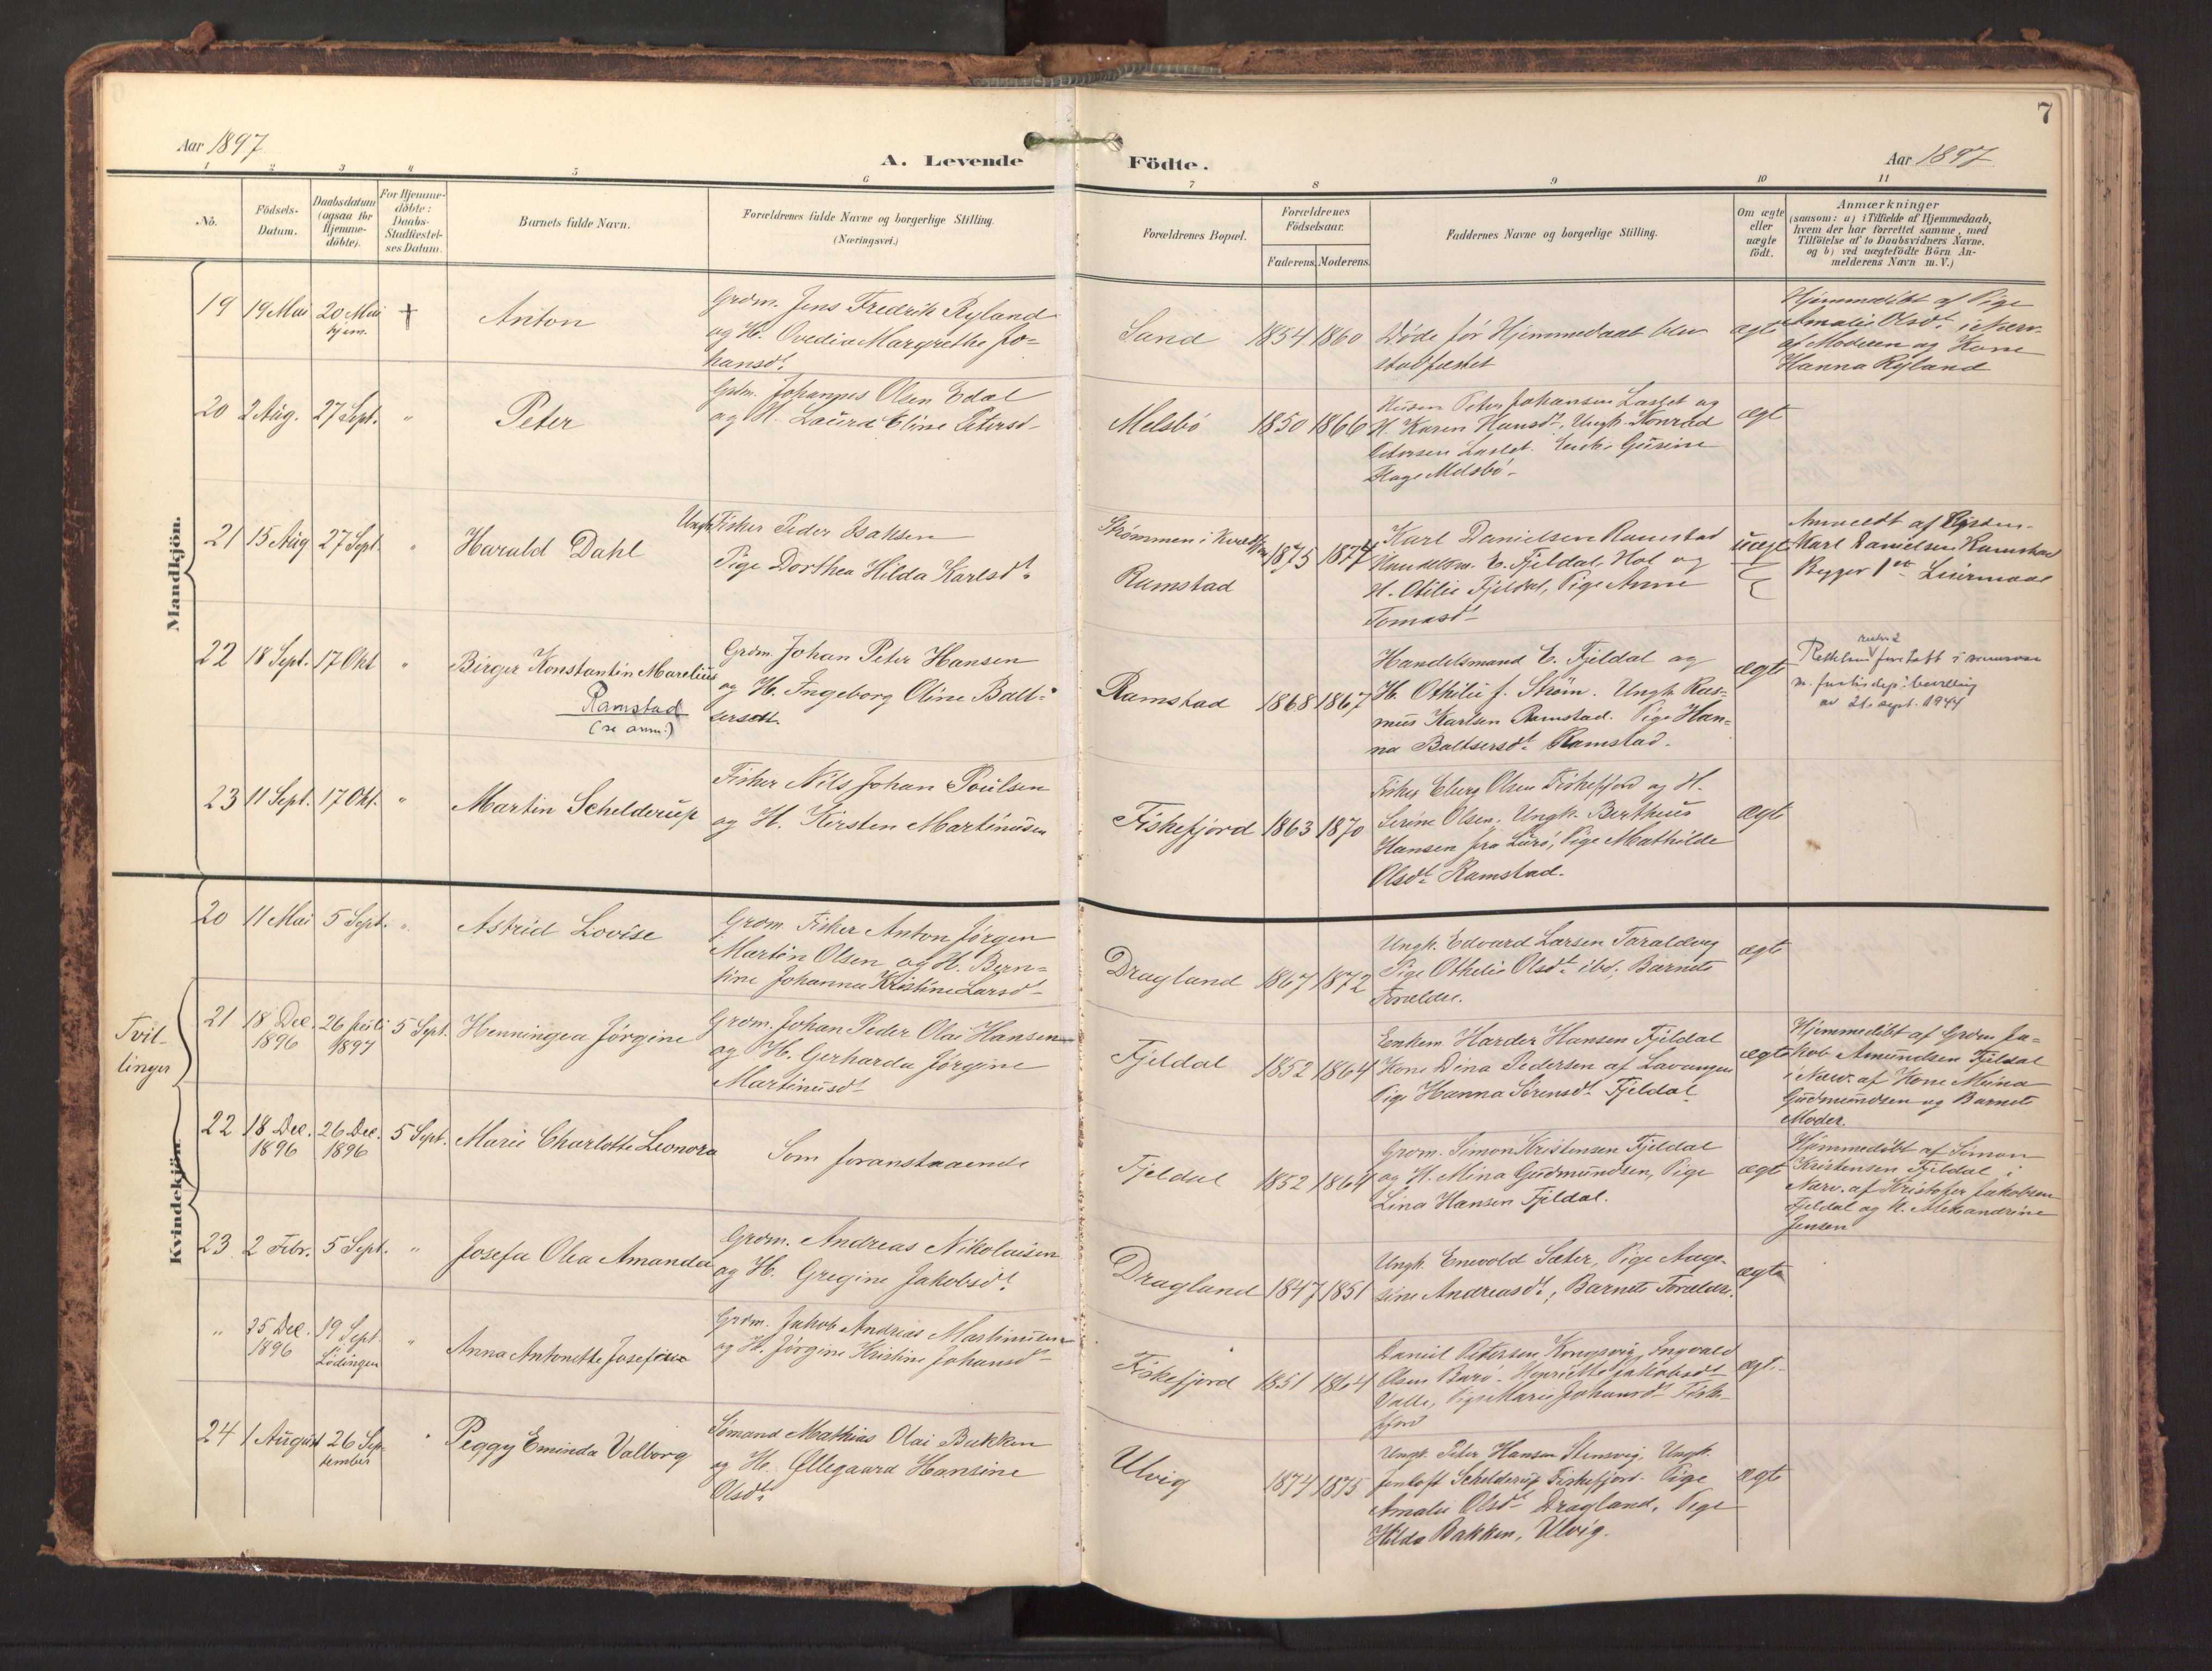 7
Aar 1897
A. Levende Födte.
Aar 1897
1 2 3 4 5 6 7 8 9 10 11
No.
Födsels-
Datum.
Daabsdatum
(ogsaa for
Hjemme-
döbte).
For Hjemme-
döbte:
Daabs-
Stadfæstel-
ses Datum.
Barnets fulde Navn.
Forældrenes fulde Navne og borgerlige Stilling.
(Næringsvei.)
Forældrenes Bopæl.
Forældrenes
Födselsaar.
Faderens. Moderens.
Faddernes Navne og borgerlige Stilling.
Om ægte
eller
uægte
födt.
Anmærkninger
(saasom: a) i Tilfælde af Hjemmedaab,
hvem der har forrettet samme, med
Tilföielse af to Daabsvidners Navne,
og b) ved uægtefödte Börn An-
melderens Navn m. V.)
Mandkjön.
19 19 Mai 20 Mai
hjem. †
Anton
Grdm. Jens Fredrik Ryland
og H. Ovedia Margrethe Jo-
hansdt.
Sand 1854 1860
Døde før Hjemmedaab blev
stadfæstet
ægte
Hjemmedøbt af Pige
Amalie Olsdt. i Nærv.
af Moderen og Kone
Hanna Ryland
20 2 Aug. 27 Sept. "
Peter
Grdm. Johannes Olsen Edal
og H. Laura Eline Petersd
Melsbö 1850 1866
Peter Johansen Laslet og
H. Karen Hansdt. Ungk. Konrad
Petersen Laslet. Enk. Gusine
Hage Melsbö
ægt
21 15 Aug 27 Sept. "
Harald Dahl
Ungk. Fisker Peder Isaksen
Pige Dorthea Hilda Karlsdt.
Strømmen i
Ramstad
1875 1874
Karl Danielsen Ramstad
Handelsm. E. Fjeldal, Hol og
H. Otilie Fjeldal, Pige Anne
Tomasdt
uægt
Anmeldt af
Karl Danielsen Ramstad
Begges 1ste Leiermaal
22 18 Sept. 17 Okt "
Birger Konstantin Marelius
Ramstad
(se anm:)
Grdm. Johan Peter Hansen
og H. Ingeborg Oline Balt-
sersdt
Ramstad 1868 1867
Handelsmand E. Fjeldal og
H. Othilie f. Strøm. Ungk. Ras-
mus Karlsen Ramstad. Pige Han-
na Baltsersdt. Ramstad.
ægte
Rettelsen foretatt i
m. justisdep:
av 21. sept. 1944
23 11 Sept. 17 Okt. "
Martin Schelderup
Fisker Nils Johan Poulsen
og H. Kirsten Martinusen
Fiskefjord 1863 1870
Fisker Eberg Olsen Fiskefjord og H.
Serine Olsen, Ungk. Bertheus
Hansen fra Lurö, Pige Mathilde
Olsdt. Ramstad.
ægte
Kvindekjön.
20 11 Mai 5 Sept. "
Astrid Lovise
Grdm. Fisker Anton Jørgen
Martin Olsen og H. Bern-
tine Johanna Kristine Larsd
Dragland 1867 1872
Ungk. Edvard Larsen Taraldvig
Pige Othelie Olsdt. ibd. Barnets
Forældre.
ægte
Tvil-
linger
21 18 Dec.
1896
26 Juli
1897
5 Sept.
Henningea Jørgine
Grdm. Johan Peder Olai Hansen
og H. Gerharda Jørgine
Martinusdt
Fjeldal 1852 1864
Enkem. Harder Hansen Fjeldal
Kone Dina Pedersen af Lavangen
Pige Hanna Sørensdt. Fjeldal
ægte
Hjemmedøbt af Grdm Ja-
kob Amundsen Fjeldal
i Nærv. af Kone Mina
Gudmundsen og Barnets
Moder.
22 18 Dec.
1896
26 Dec.
1896
5 Sept.
Marie Charlotte Leonora
Som foranstaaende
Fjeldal 1852 1864
Grdm. Simon Kristensen Fjeldal
og H. Mina Gudmundsen, Pige
Lina Hansen Fjeldal.
ægt
Hjemmedøbt af Simon
Kristensen Fjeldal i
Nærv. af Kristofer Jakobsen
Fjeldal og H. Alexandrine
Jensen
23 2 Febr. 5 Sept. "
Josefa Olea Amanda
Grdm. Andreas Nikolaisen
og H. Gregine Jakobsdt.
Dragland 1847 1851
Ungk. Enevold Sæter, Pige Aage-
sine Andreasdt., Barnets Forældre.
ægte
" 25 Dec.
1896
19 Sept.
Lödingen
"
Anna Antonette Josefine
Grdm. Jakob Andreas Martinusen
og H. Jørgine Kristine Johansd
Fiskefjord 1851 1864
Daniel Petersen Kongsvig, Ingvald
Olsen Barö. Henriette Jakobsdt
Valle, Pige Marie Johansdt. Fiske-
fjord
ægt.
24 1 August 26 Sep-
tember
"
Peggy Eminda Valborg
Sømand Mathias Olai Bakken
og H. Ellegaard Hansine
Olsdt.
Ulvig 1874 1875
Ungk. Peter Hansen Stensvig, Ungk.
Jentoft Schelderup Fiskefjord. Pige
Amalie Olsdt Dragland, Pige
Hilda Bakken, Ulvig.
ægte